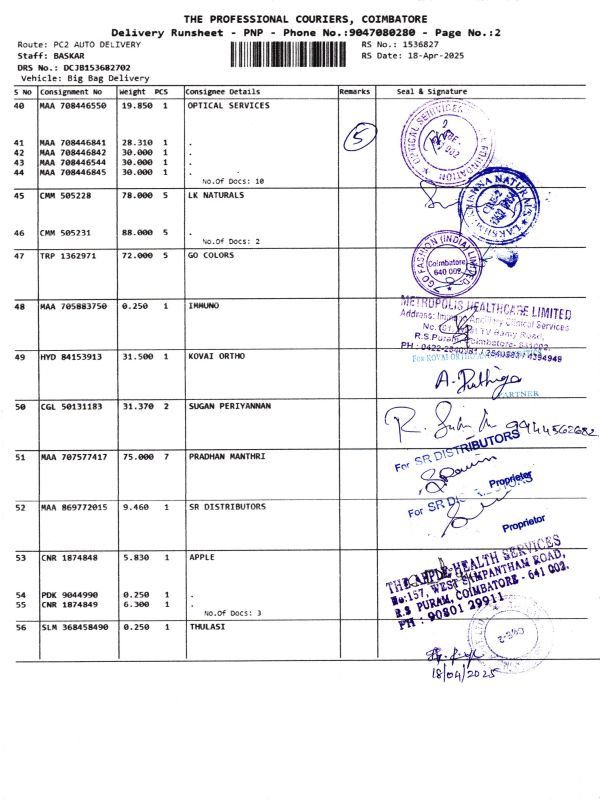 THE PROFESSIONAL COURIERS, COIMBATORE
Delivery Runsheet - PNP - Phone No.:9047080280 - Page No.:2
Route: PC2 AUTO DELIVERY
RS No.: 1536827
Staff: BASKAR
RS Date: 18-Apr-2025
DRS No.: DCJB153682702
Vehicle: Big Bag Delivery
S No Consignment No Weight PCS Consignee Details Remarks Seal & Signature
40 MAA 708446550 19.850 1 OPTICAL SERVICES
41 MAA 708446841 28.310 1 .
42 MAA 708446842 30.000 1 .
43 MAA 708446544 30.000 1 .
44 MAA 708446845 30.000 1 .
No.Of Docs: 10
5
OPTICAL SERVICES
FOUNDATION
45 CMM 505228 78.000 5 LK NATURALS
46 CMM 505231 88.000 5 .
No.Of Docs: 2
KRISHNA NATURALS
47 TRP 1362971 72.000 5 GO COLORS
GO FASHION (INDIA) LIMITED
Coimbatore
640 002
48 MAA 705883750 0.250 1 IMMUNO
METROPOLIS HEALTHCARE LIMITED
Address:
Ancillary Clinical Services
TV Samy Road,
R.S.Puram, Coimbatore-
PH : 0422-
49 HYD 84153913 31.500 1 KOVAI ORTHO
For KOVAI ORTHO
PARTNER
50 CGL 50131183 31.370 2 SUGAN PERIYANNAN
9944562682
51 MAA 707577417 75.000 7 PRADHAN MANTHRI
For SR DISTRIBUTORS
Proprietor
52 MAA 869772015 9.460 1 SR DISTRIBUTORS
For SR DISTRIBUTORS
Proprietor
53 CNR 1874848 5.830 1 APPLE
54 PDK 9044990 0.250 1 .
55 CNR 1874849 6.300 1 .
No.Of Docs: 3
THE APPLE HEALTH SERVICES
No:157, WEST SAMPANTHAM ROAD,
R.S PURAM, COIMBATORE - 641 002.
PH : 90801 29911
56 SLM 368458490 0.250 1 THULASI
CBE-2
18/04/2025